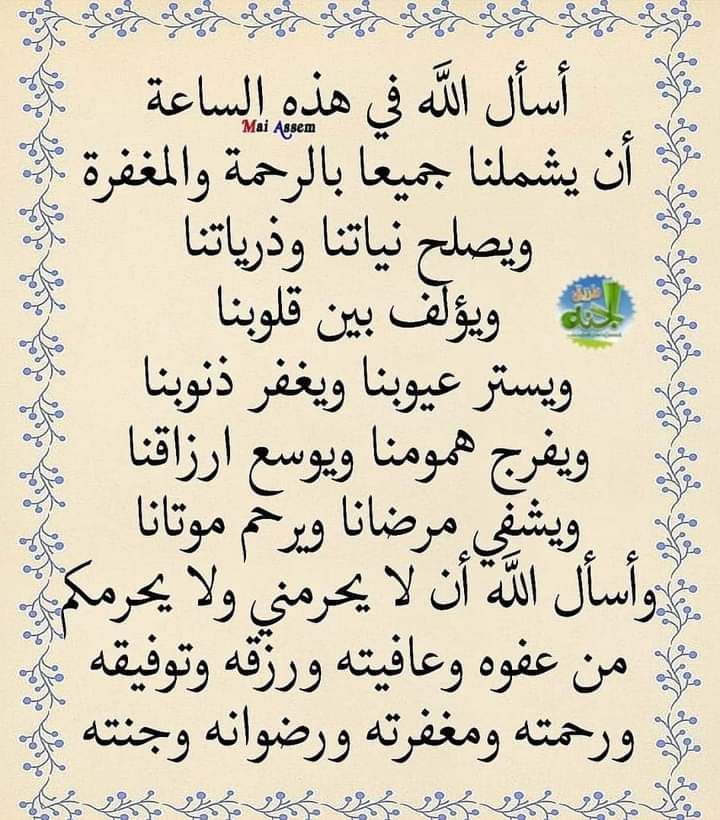 أسأل الله في هذه الساعة
Mai Assem
أن يشملنا جميعا بالرحمة والمغفرة
ويصلح نياتنا وذرياتنا
ويؤلف بين قلوبنا
طريق
الجنه
ويستر عيوبنا ويغفر ذنوبنا
ويفرج همومنا ويوسع ارزاقنا
ويشفي مرضانا ويرحم موتانا
وأسأل الله أن لا يحرمني ولا يحرمكم
من عفوه وعافيته ورزقه وتوفيقه
ورحمته ومغفرته ورضوانه وجنته